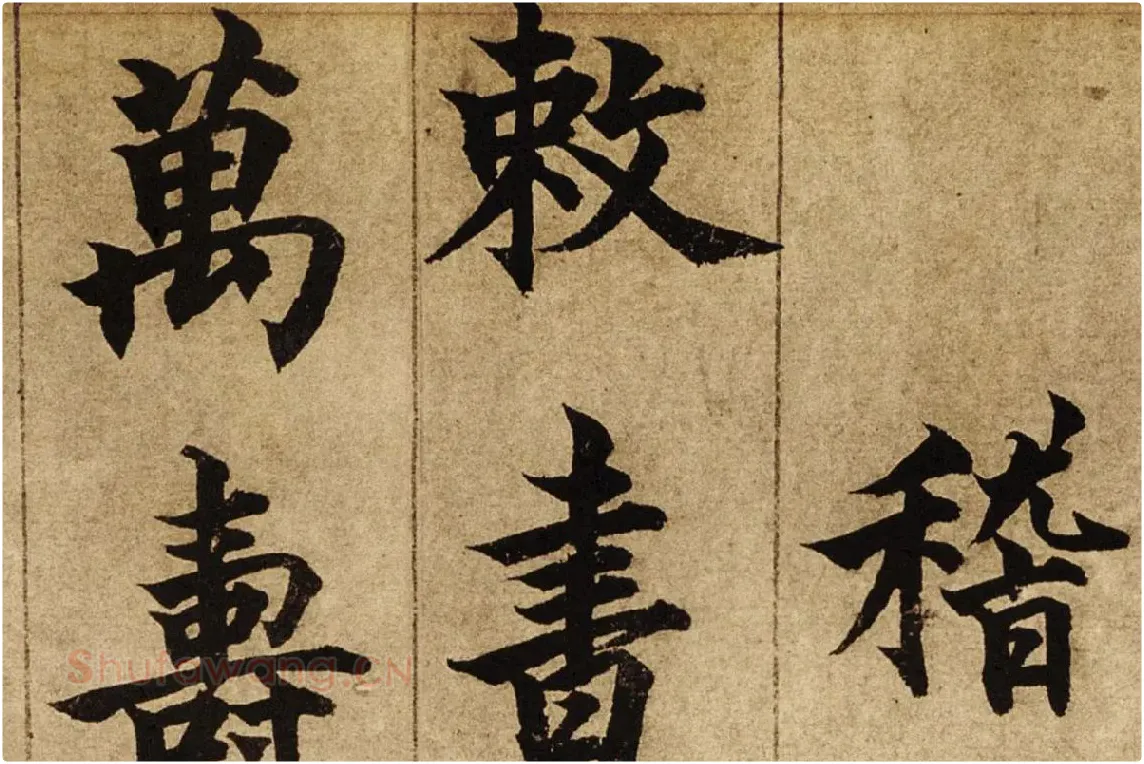 稽
敕書
萬壽
Shufawang.CN